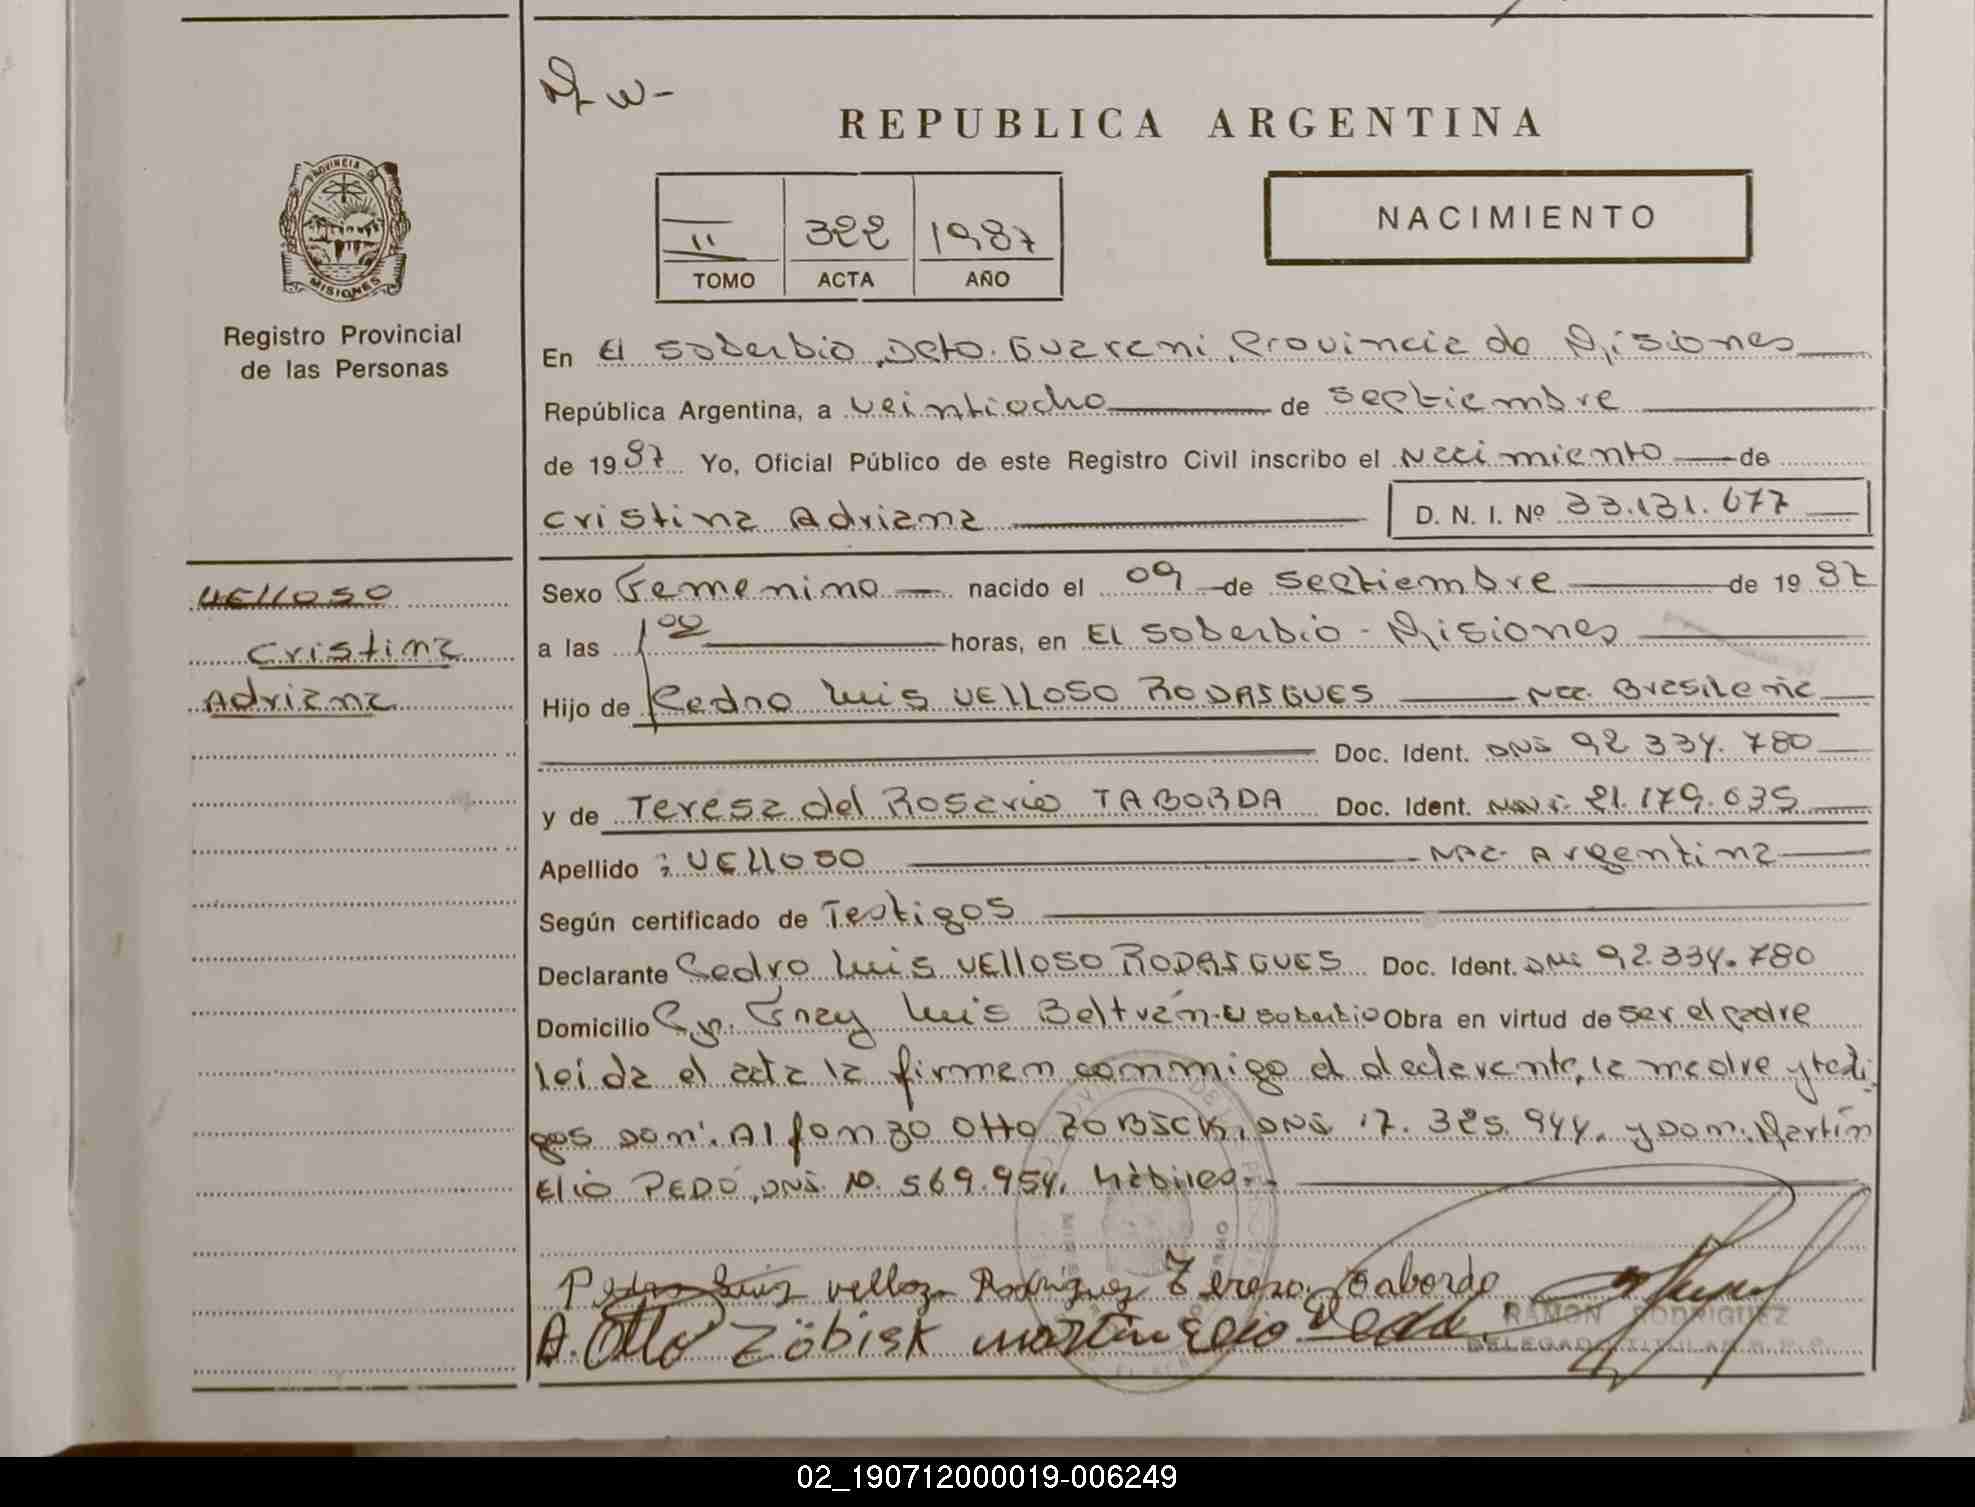 REPUBLICA ARGENTINA
PROVINCIA DE
MISIONES
Registro Provincial
de las Personas
II 322 1987
TOMO ACTA AÑO
NACIMIENTO
En El Soberbio, Dpto. Guarani, Provincia de Misiones
República Argentina, a veintiocho de septiembre
de 1987 Yo, Oficial Público de este Registro Civil inscribo el Nacimiento de
Cristina Adriana D. N. I. Nº 33.131.677
VELLOSO
Cristina
Adriana
Sexo Femenino nacido el 09 de septiembre de 1987
a las 1,00 horas, en El Soberbio - Misiones
Hijo de Pedro Luis VELLOSO RODRIGUES Nac. Brasileña
Doc. Ident. DNI 92 334. 780
y de Teresa del Rosario TABORDA Doc. Ident. 21.179.635
Apellido : VELLOSO Nac. Argentina
Según certificado de Testigos
Declarante Pedro Luis VELLOSO RODRIGUES Doc. Ident. DNI 92.334.780
Domicilio Fray Luis Beltrán - El Soberbio Obra en virtud de ser el padre
leida el acta la firman conmigo el declarante, la madre y testi-
gos Don: Alfonzo Otto ZOBISCK, DNI 17. 325. 944. y Don. Martín
Elio PEDÓ, DNI 10. 569.954, hábiles.
Pedro Luis velloz Rodriguez Teresa Taborda
A. Otto Zöbisk Martin Elio Pedó
RAMON RODRIGUEZ
DELEGADO TITULAR R.P.P.
02_190712000019-006249